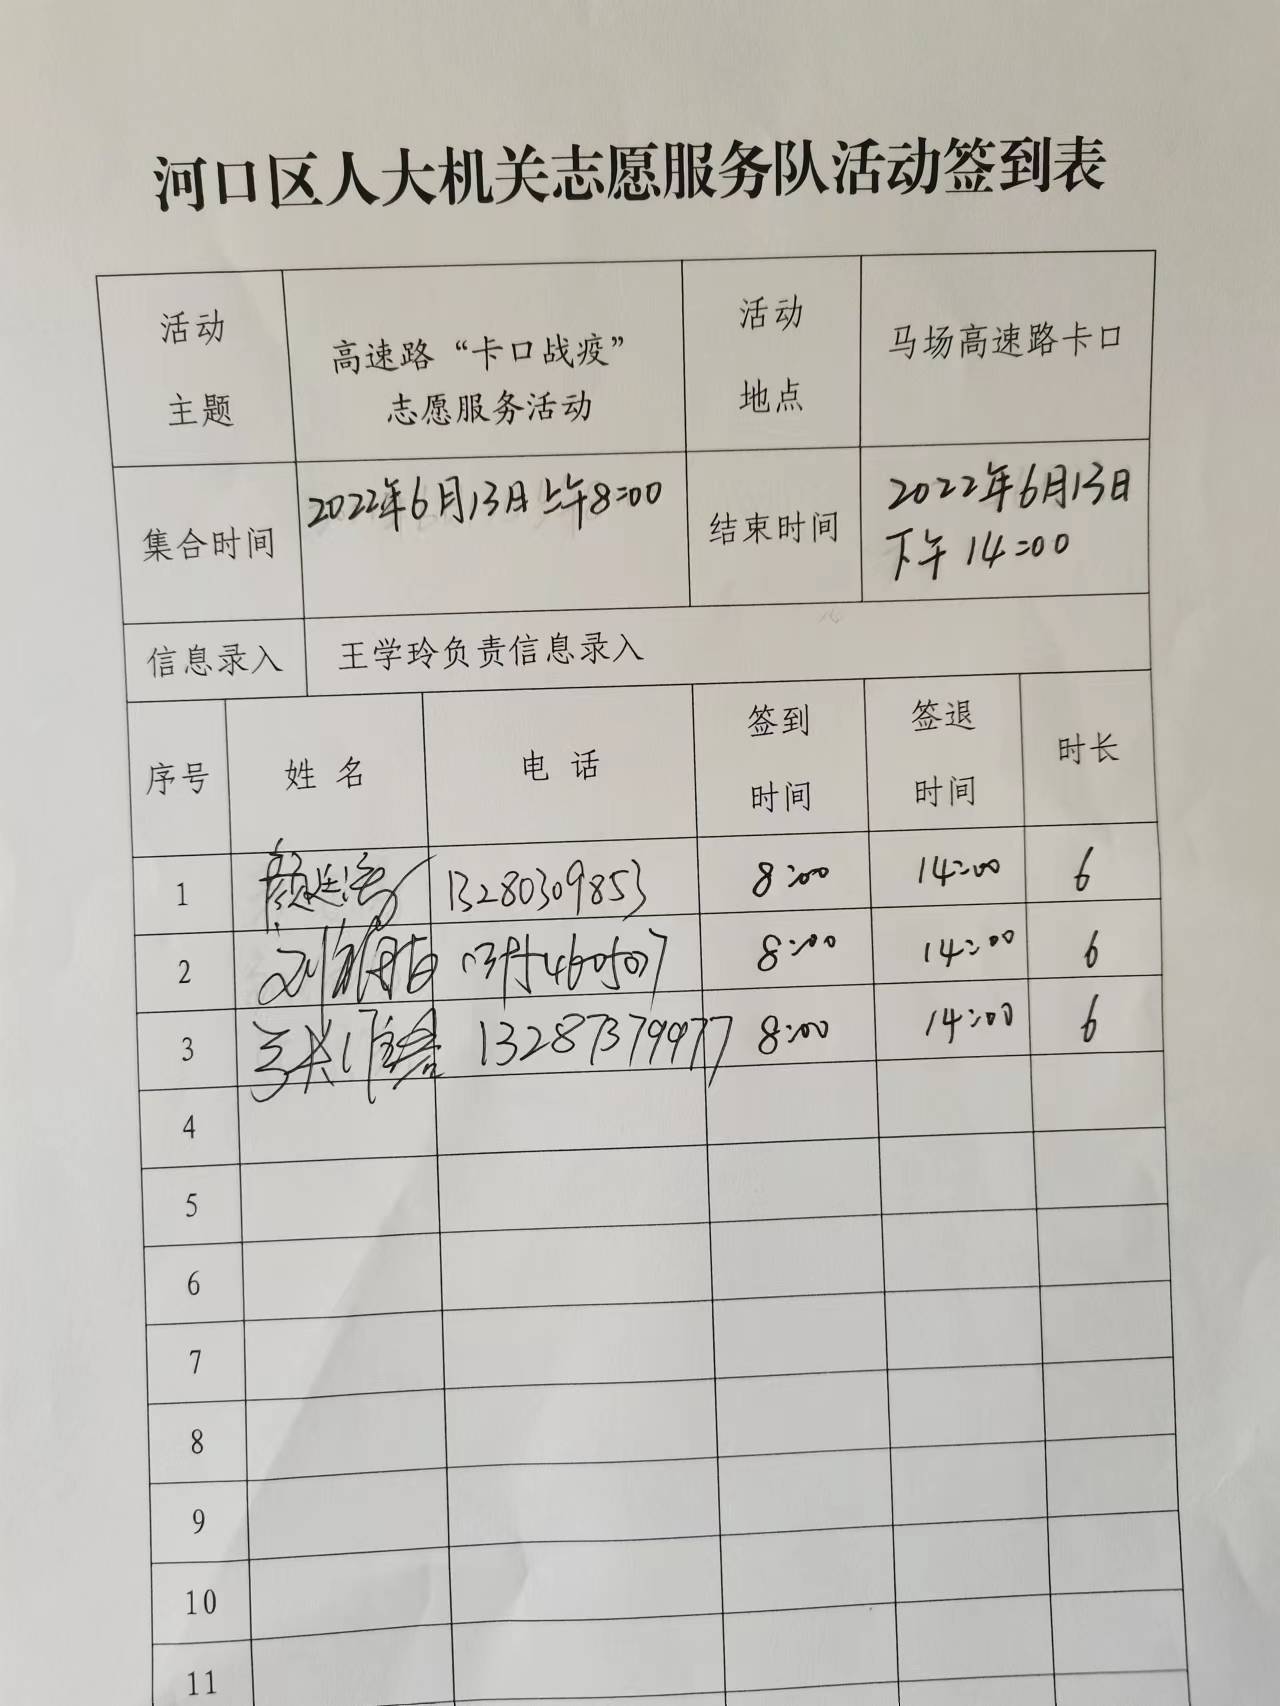 河口区人大机关志愿服务队活动签到表
活动
主题
高速路“卡口战疫”
志愿服务活动
活动
地点
马场高速路卡口
集合时间
2022年6月13日上午8:00
结束时间
2022年6月13日
下午14:00
信息录入
王学玲负责信息录入
序号
姓名
电话
签到
时间
签退
时间
时长
1
13280309853
8:00
14:00
6
2
8:00
14:00
6
3
13287379977
8:00
14:00
6
4
5
6
7
8
9
10
11